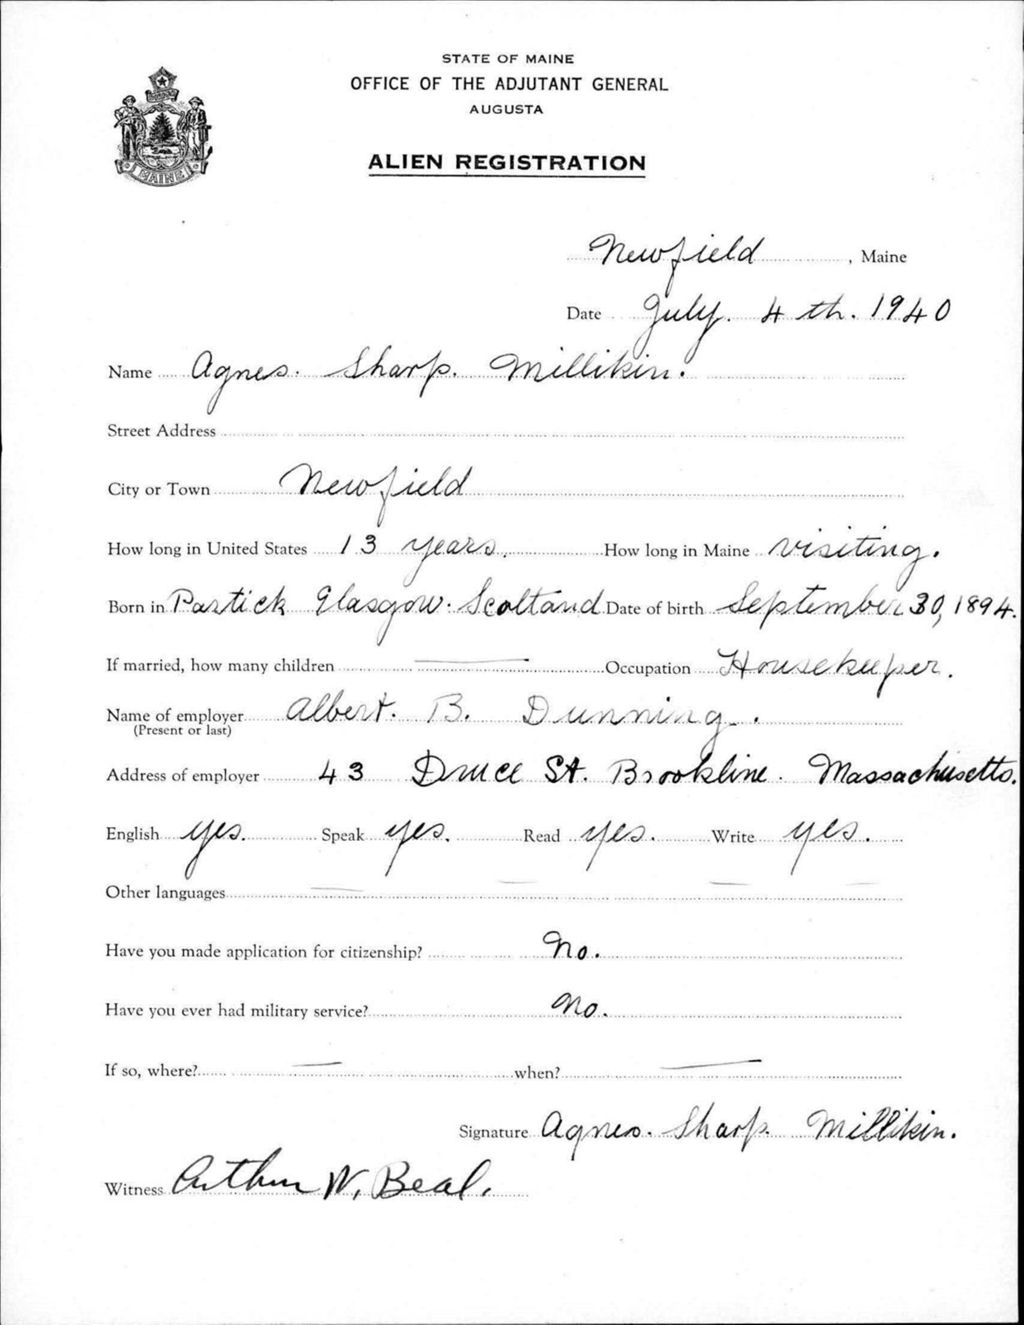 STATE OF MAINE
OFFICE OF THE ADJUTANT GENERAL
AUGUSTA
ALIEN REGISTRATION
MAINE
Newfield, Maine
Date July. 4th. 1940
Name Agnes. Sharp. Millikin.
Street Address
City or Town Newfield
How long in United States 13 years. How long in Maine visiting.
Born in Partick Glasgow. Scotland Date of birth September 30, 1894.
If married, how many children — Occupation Housekeeper.
Name of employer Albert. B. Dunning.
(Present or last)
Address of employer 43 Druce St. Brookline. Massachusetts.
English yes. Speak yes. Read yes. Write yes.
Other languages — — — —
Have you made application for citizenship? No.
Have you ever had military service? No.
If so, where? — when? —
Signature Agnes. Sharp. Millikin.
Witness Arthur W. Beal.